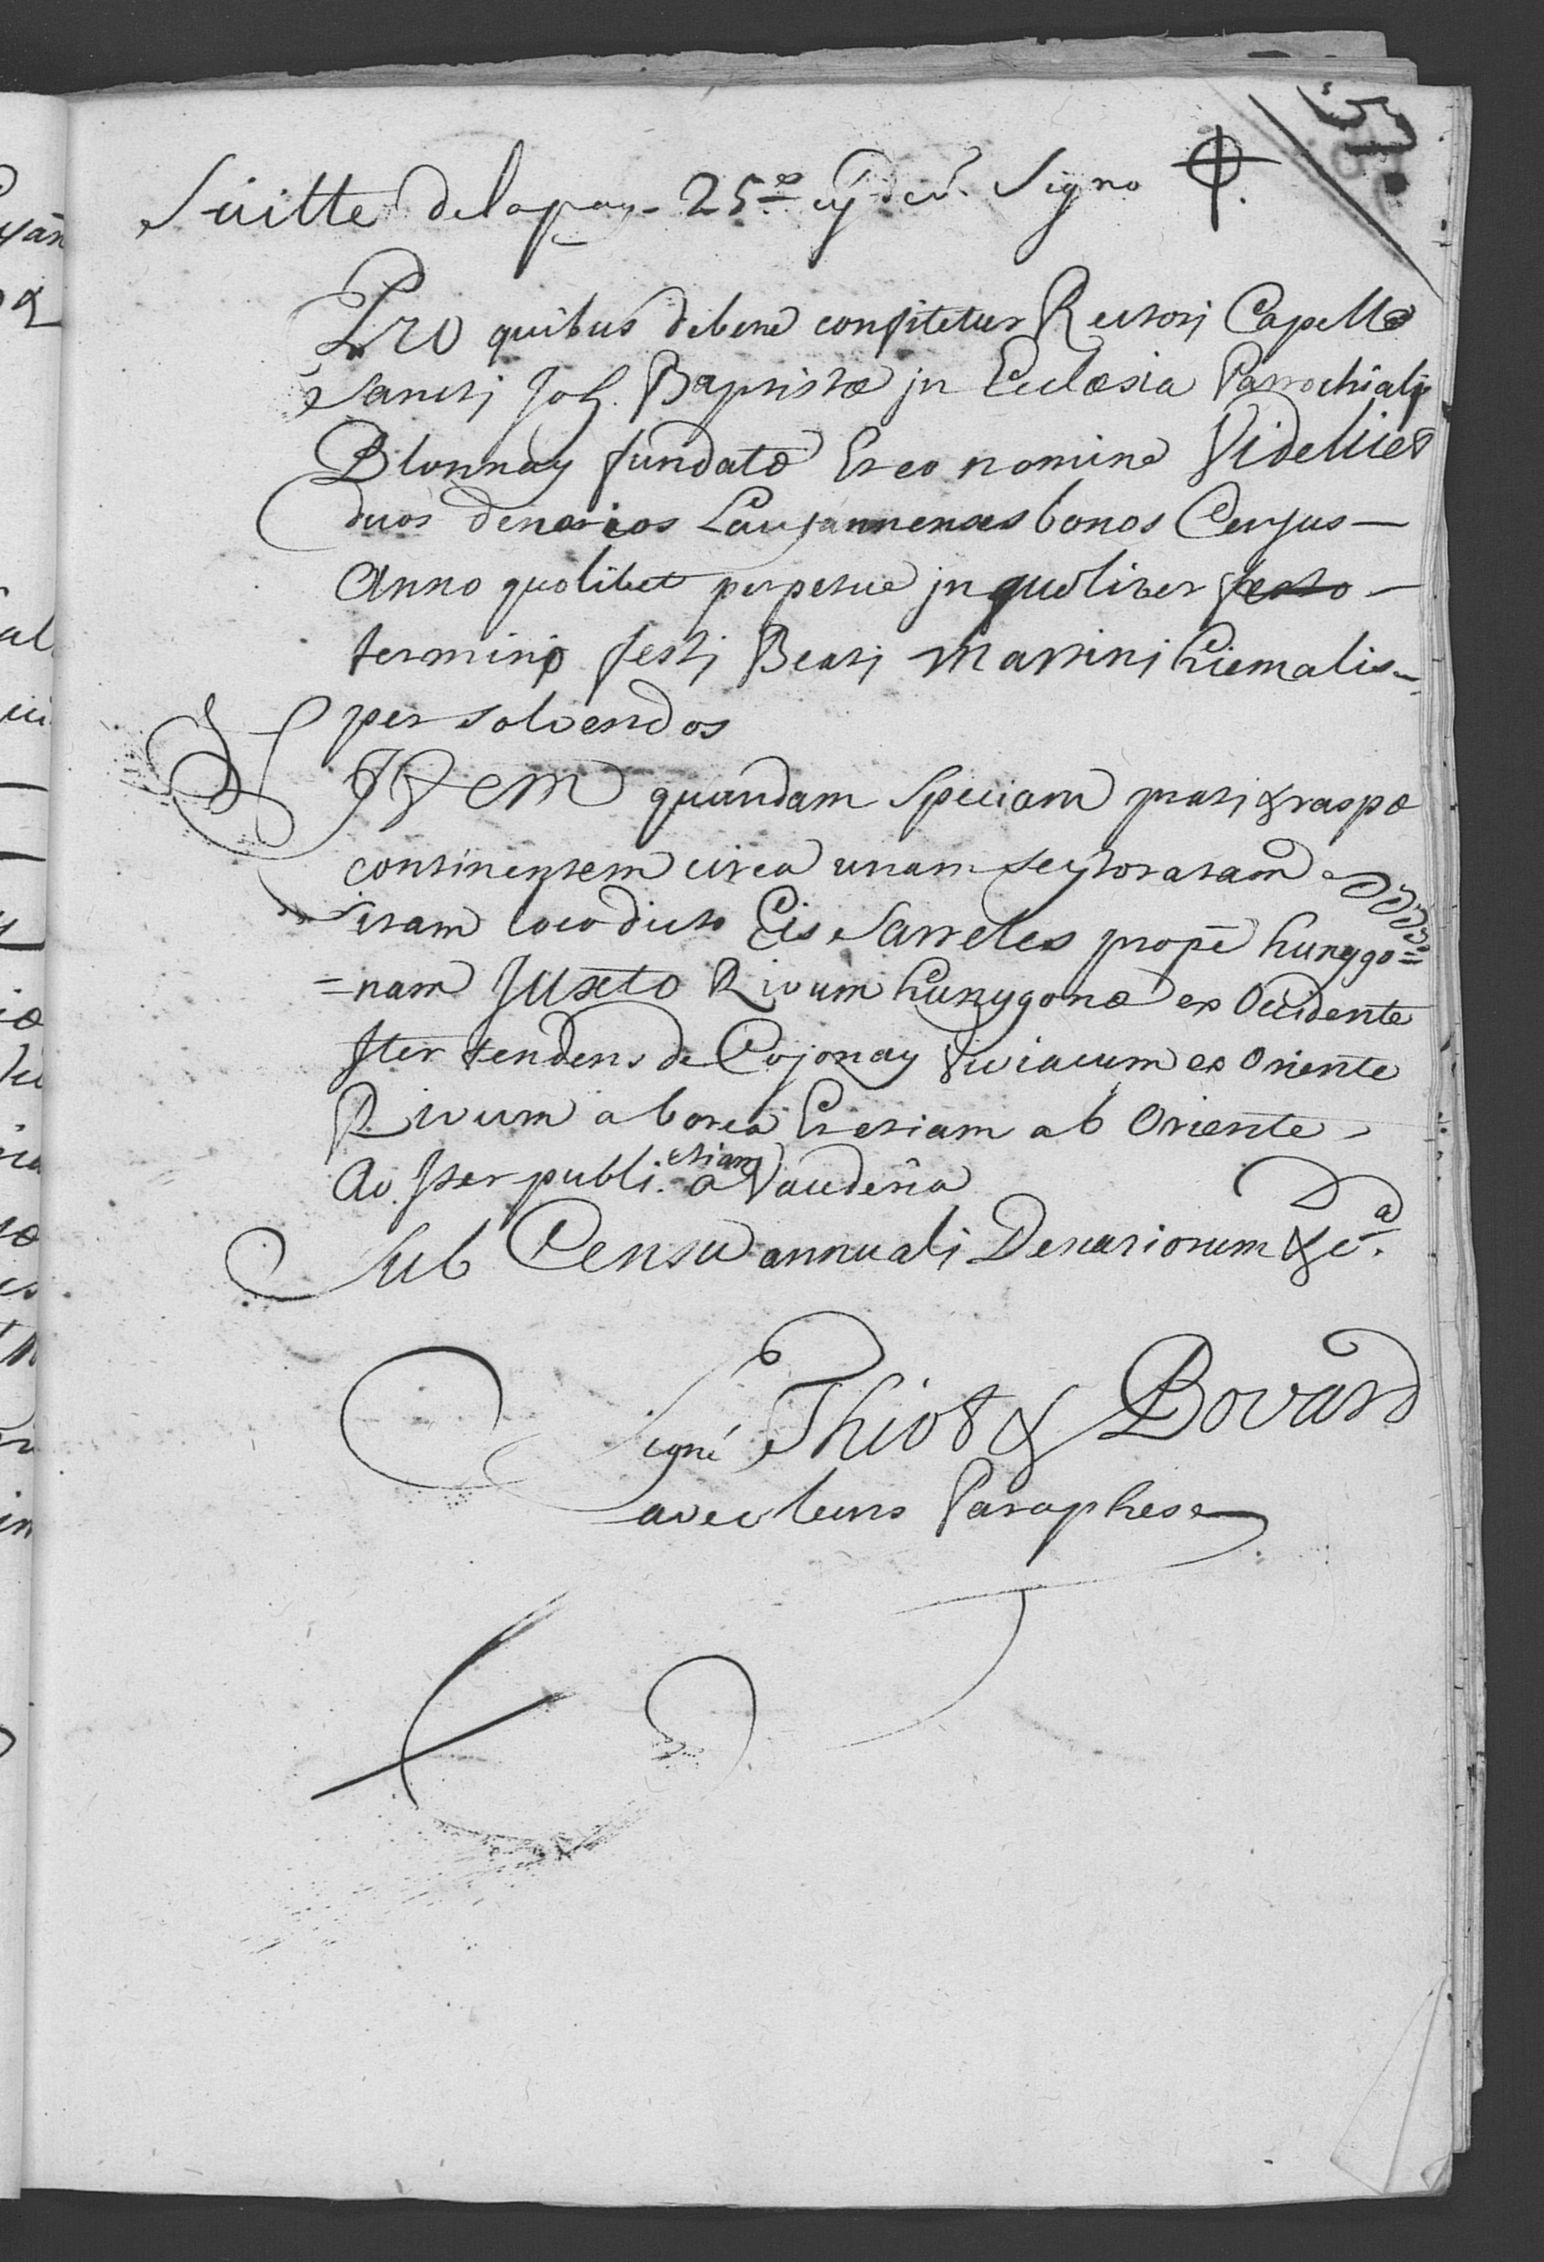 Suitte de la pag. 25.e cy dev.t Signo
Pro quibus debere confitetur Rectorj Capellæ
Sanctj Joh. Baptistæ jn Ecclæsia Parrochialj
Blonnay fundatæ Et eo nomine Videlicet
duos denarios Lausannenses bonos Census —
Anno quolibet perpetue jn quolibet festo —
termino festj Beatj Martinj hiemalis —
persolvendos
JTem quandam Speciam pratj & raspæ
continentem circa unam seytoratam
sitam loco dicto Eis Sarreles propé hunygo=
=nam Juxto Rivum hunygonæ ex Occidente
Jter tendens de Cojonay Viviacum ex Oriente
Rivum a borea Et etiam ab Oriente
Ac Jter publi. etiam a Vauderia
Sub Censu annualj Denariorum &c.a
Signé Thiot & Bovard
avec leurs Paraphes